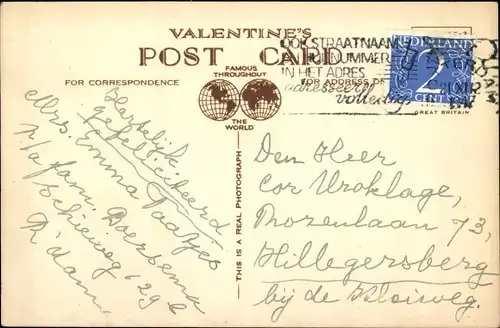 VALENTINE'S
POST CARD
FAMOUS THROUGHOUT
THE WORLD
FOR CORRESPONDENCE
FOR ADDRESS
THIS IS A REAL PHOTOGRAPH
GREAT BRITAIN
OOK STRAATNAAM
HUISNUMMER
IN HET ADRES
adresseert
volledig
NEDERLAND
2
CENT
Hartelijk
gefeliciteerd
Mevr. Emma Paatjes
p/a fam. Boersema
Schieweg 629
R'dam
Den Heer
Cor Uroklage,
Prozenlaan 73,
Hillegersberg
bij de Kleiweg.